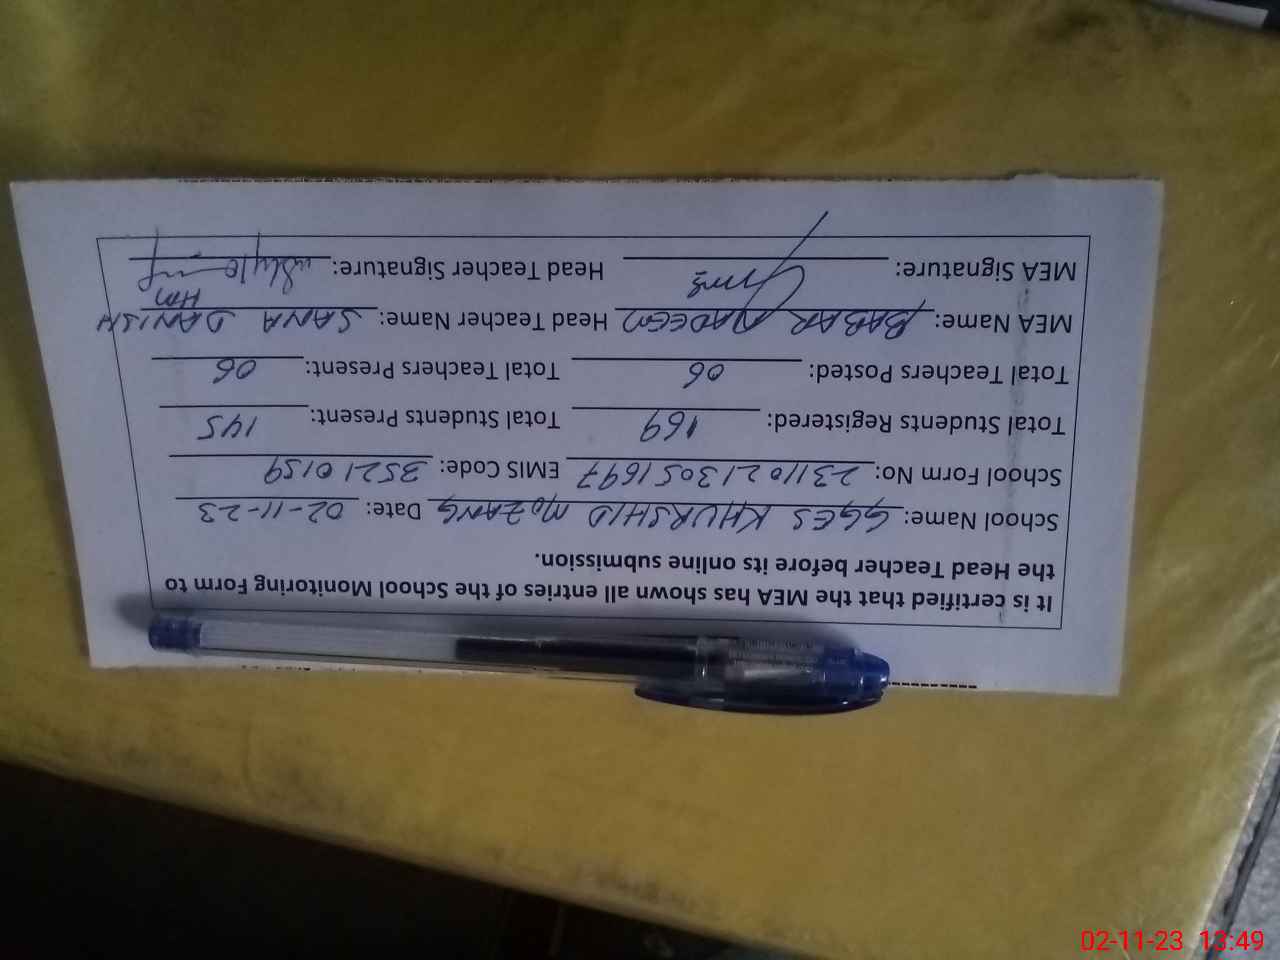 It is certified that the MEA has shown all entries of the School Monitoring Form to
the Head Teacher before its online submission.
School Name: GGES KHURSHID MOZANG Date: 02-11-23
School Form No: 23110213051697 EMIS Code: 35210159
Total Students Registered: 169 Total Students Present: 145
Total Teachers Posted: 06 Total Teachers Present: 06
MEA Name: BABAR NADEEM Head Teacher Name: SANA DANISH
HM
MEA Signature: Head Teacher Signature:
02-11-23 13:49